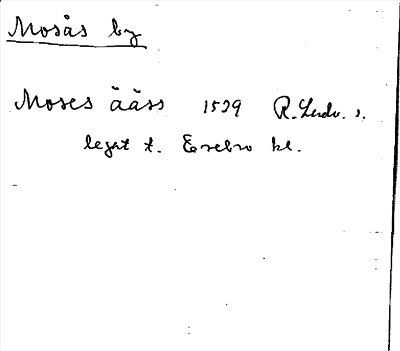 Mosås by
Moses ääss 1539 R. Ledv. s.
legat t. Örebro kl.